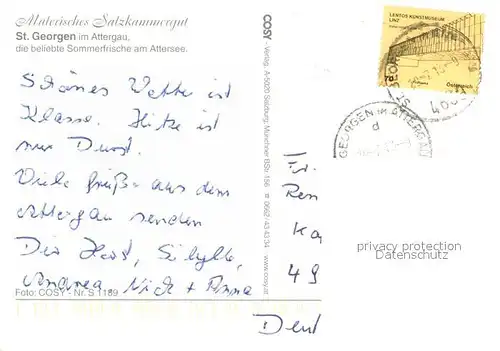 Malerisches Salzkammergut
St. Georgen im Attergau,
die beliebte Sommerfrische am Attersee.
Schönes Wetter ist
Klasse. Hitze ist
nur Durst.
Viele Grüße aus dem
Attergau senden
Die Horst, Sibylle,
Andrea Nick + Anna
Foto: COSY - Nr. S 1189
COSY - Verlag, A-5020 Salzburg
www.cosy.at
LENTOS KUNSTMUSEUM
LINZ
Österreich
GEORGEN IM ATTERGAU
d
Fr.
Ren
Ka
49
Deut
privacy protection
Datenschutz